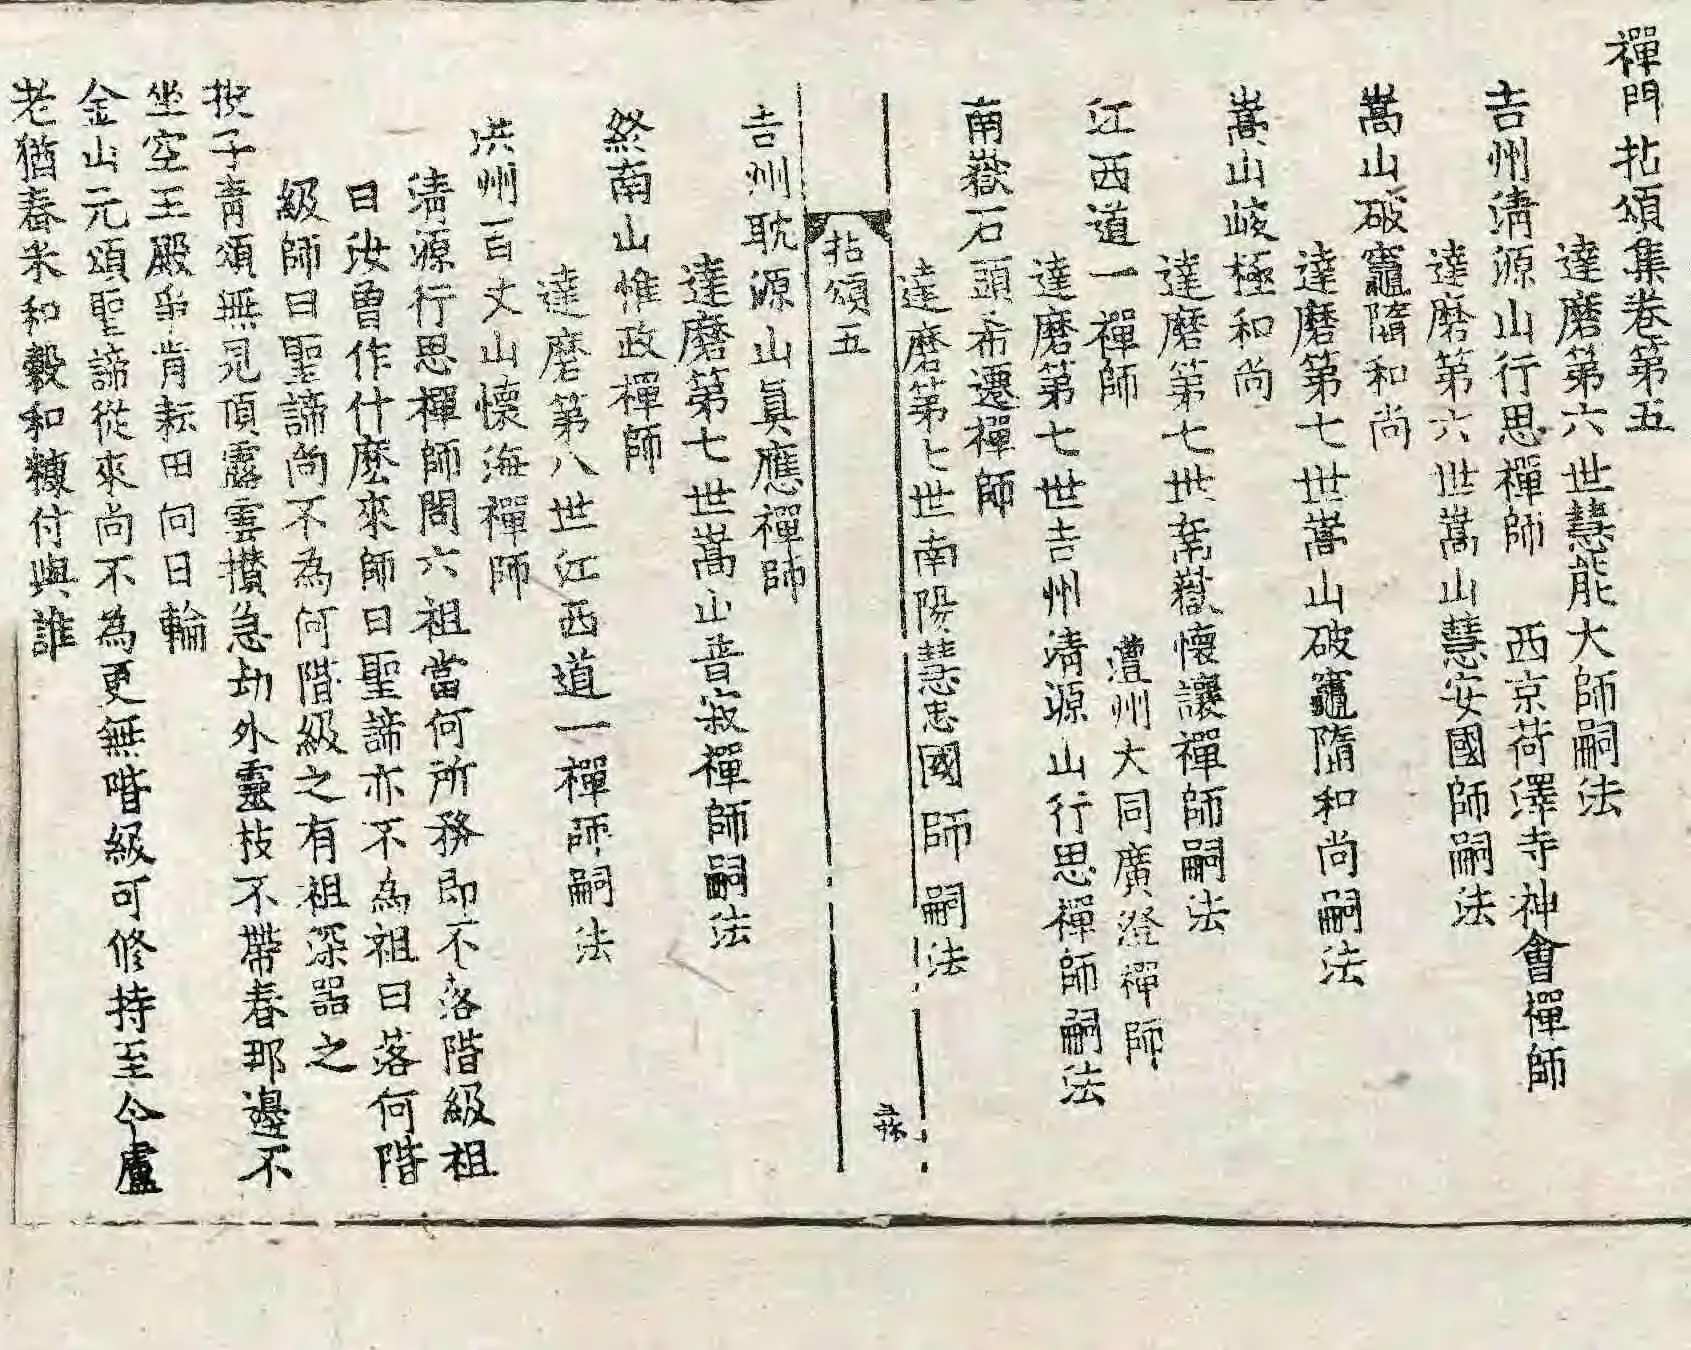 禪門拈頌集卷第五
達磨第六世慧能大師嗣法
吉州淸源山行思禪師 西京荷澤寺神會禪師
達磨第六世嵩山慧安國師嗣法
嵩山破竈隋和尚
達磨第七世嵩山破竈隋和尚嗣法
嵩山峻極和尚
達磨第七世南嶽懷讓禪師嗣法
江西道一禪師 澧州大同廣澄禪師
達磨第七世吉州淸源山行思禪師嗣法
南嶽石頭希遷禪師
達磨第七世南陽慧忠國師嗣法
拈頌五
吉州耽源山眞應禪師
達磨第七世嵩山普寂禪師嗣法
終南山惟政禪師
達磨第八世江西道一禪師嗣法
洪州百丈山懷海禪師
淸源行思禪師問六祖當何所務卽不落階級祖
曰汝曾作什麽來師曰聖諦亦不為祖曰落何階
級師曰聖諦尚不為何階級之有祖深器之
投子青頌無見頂露雲攢急劫外靈枝不帶春那邊不
坐空王殿爭肯耘田向日輪
金山元頌聖諦從來尚不為更無階級可修持至今盧
老猶舂米和穀和糠付與誰